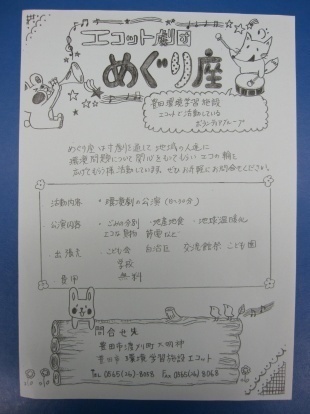 エコット劇団
めぐり座
豊田環境学習施設
エコットで活動している
ボランティアグループ
めぐり座は寸劇を通して地域の人達に
環境問題について関心をもてもらいエコの輪を
広げてもらう様、活動しています。ぜひお手軽にお問合せください。
活動内容 ・環境劇の公演
公演内容 ・ごみの分別 ・地産地食 ・地球温暖化
エコな買物 節電など
出張先 ・こども会 自治区 交流館祭 こども園
学校
費用 無料
問合せ先
豊田市渡刈町大明神
豊田市環境学習施設エコット
TEL 0565(26)-8058 Fax 0565(26)8068